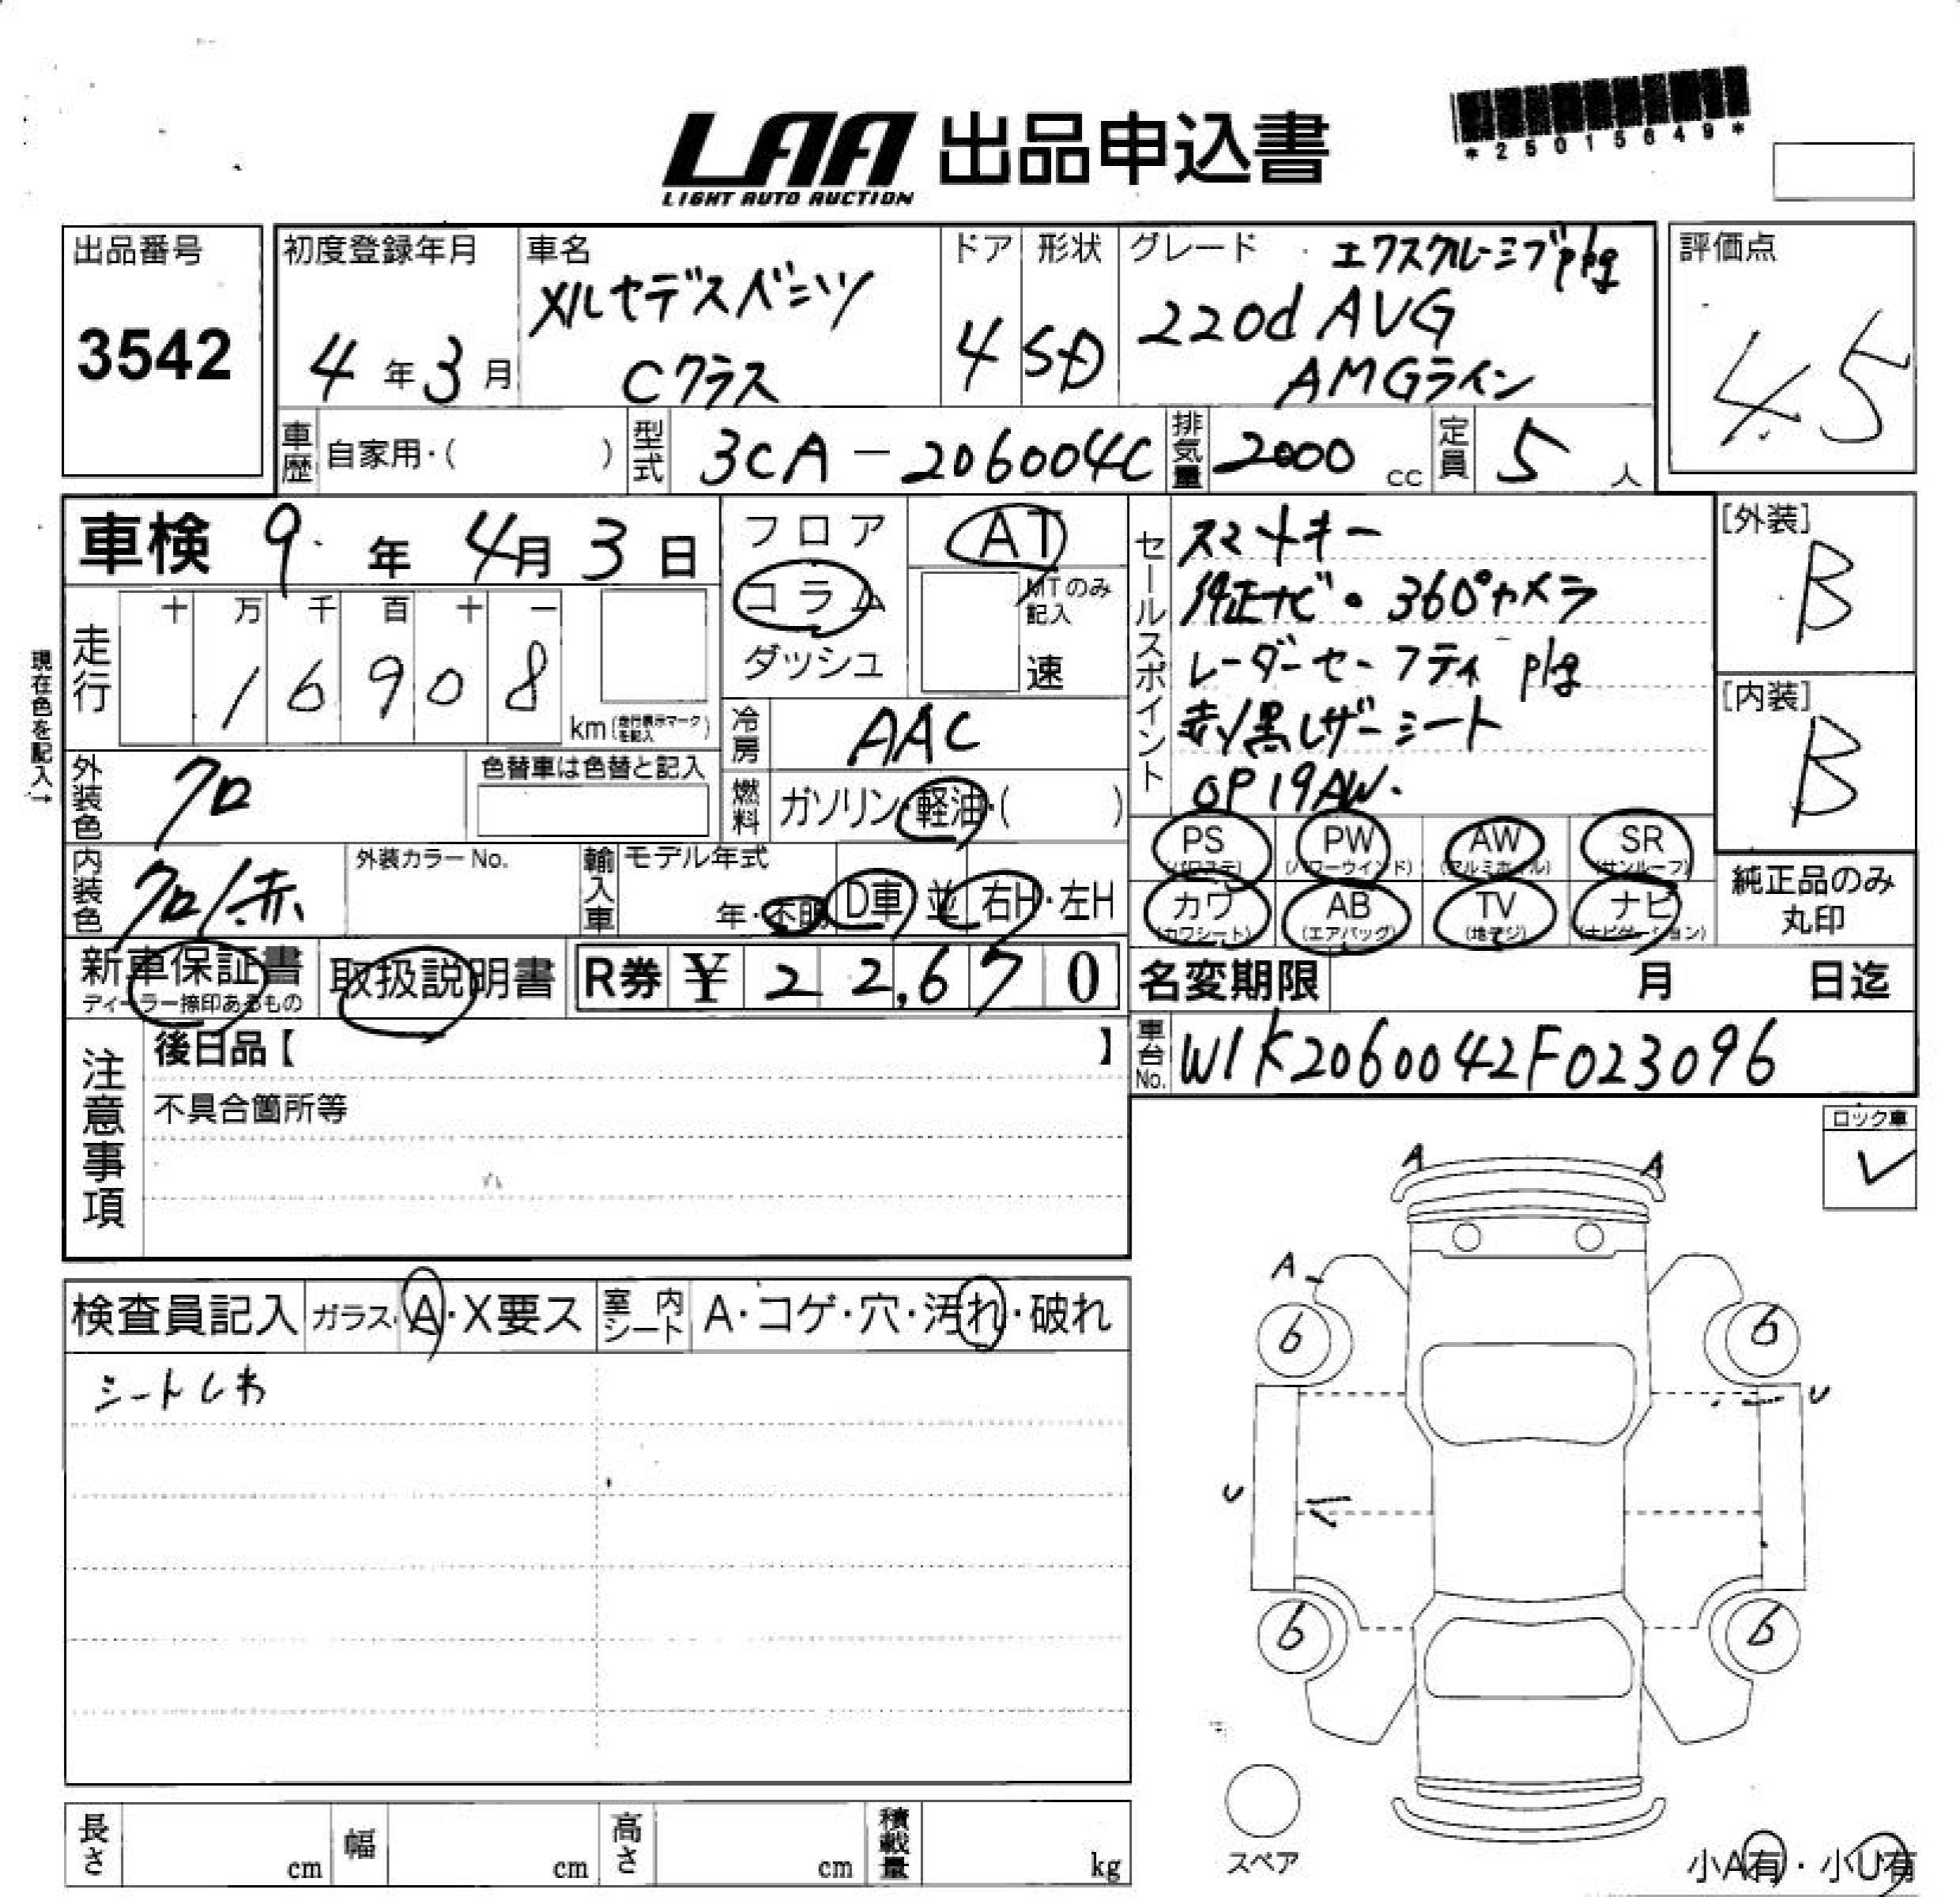 LAA 出品申込書
LIGHT AUTO AUCTION
*25015649*
出品番号
3542
初度登録年月
4年3月
車名
メルセデスベンツ
Cクラス
ドア
4
形状
SD
グレード
エクスクルーシブpkg
220d AVG
AMGライン
評価点
4.5
車歴 自家用・( )
型式 3CA-206004C
排気量 2000 cc
定員 5 人
車検 9年 4月 3日
走行 十 万 千 百 十 一
16908
km(走行表示マークを記入)
現在色を記入→
フロア
コラム
ダッシュ
AT
MTのみ記入
速
冷房 AAC
燃料 ガソリン・軽油・( )
外装色 クロ
色替車は色替と記入
内装色 クロ/赤
外装カラーNo.
輸入車 モデル年式
年・不明 D車 並 右H・左H
セールスポイント
スマートキー
純正ナビ・360°カメラ
レーダーセーフティ pkg
赤/黒レザーシート
OP19AW.
[外装]
B
[内装]
B
PS (パワステ)
PW (パワーウインド)
AW (アルミホイル)
SR (サンルーフ)
カワ (カワシート)
AB (エアバッグ)
TV (地デジ)
ナビ (ナビゲーション)
純正品のみ
丸印
新車保証書
ディーラー捺印あるもの
取扱説明書
R券 ¥ 22,670
名変期限 月 日迄
車台No. W1K2060042F023096
注意事項
後日品【 】
不具合箇所等
ロック車
✓
検査員記入 ガラス A・X要ス
室内シート A・コゲ・穴・汚れ・破れ
シートしわ
A A
A
6 6
U
U
6 6
スペア
小A有・小U有
長さ cm
幅 cm
高さ cm
積載量 kg